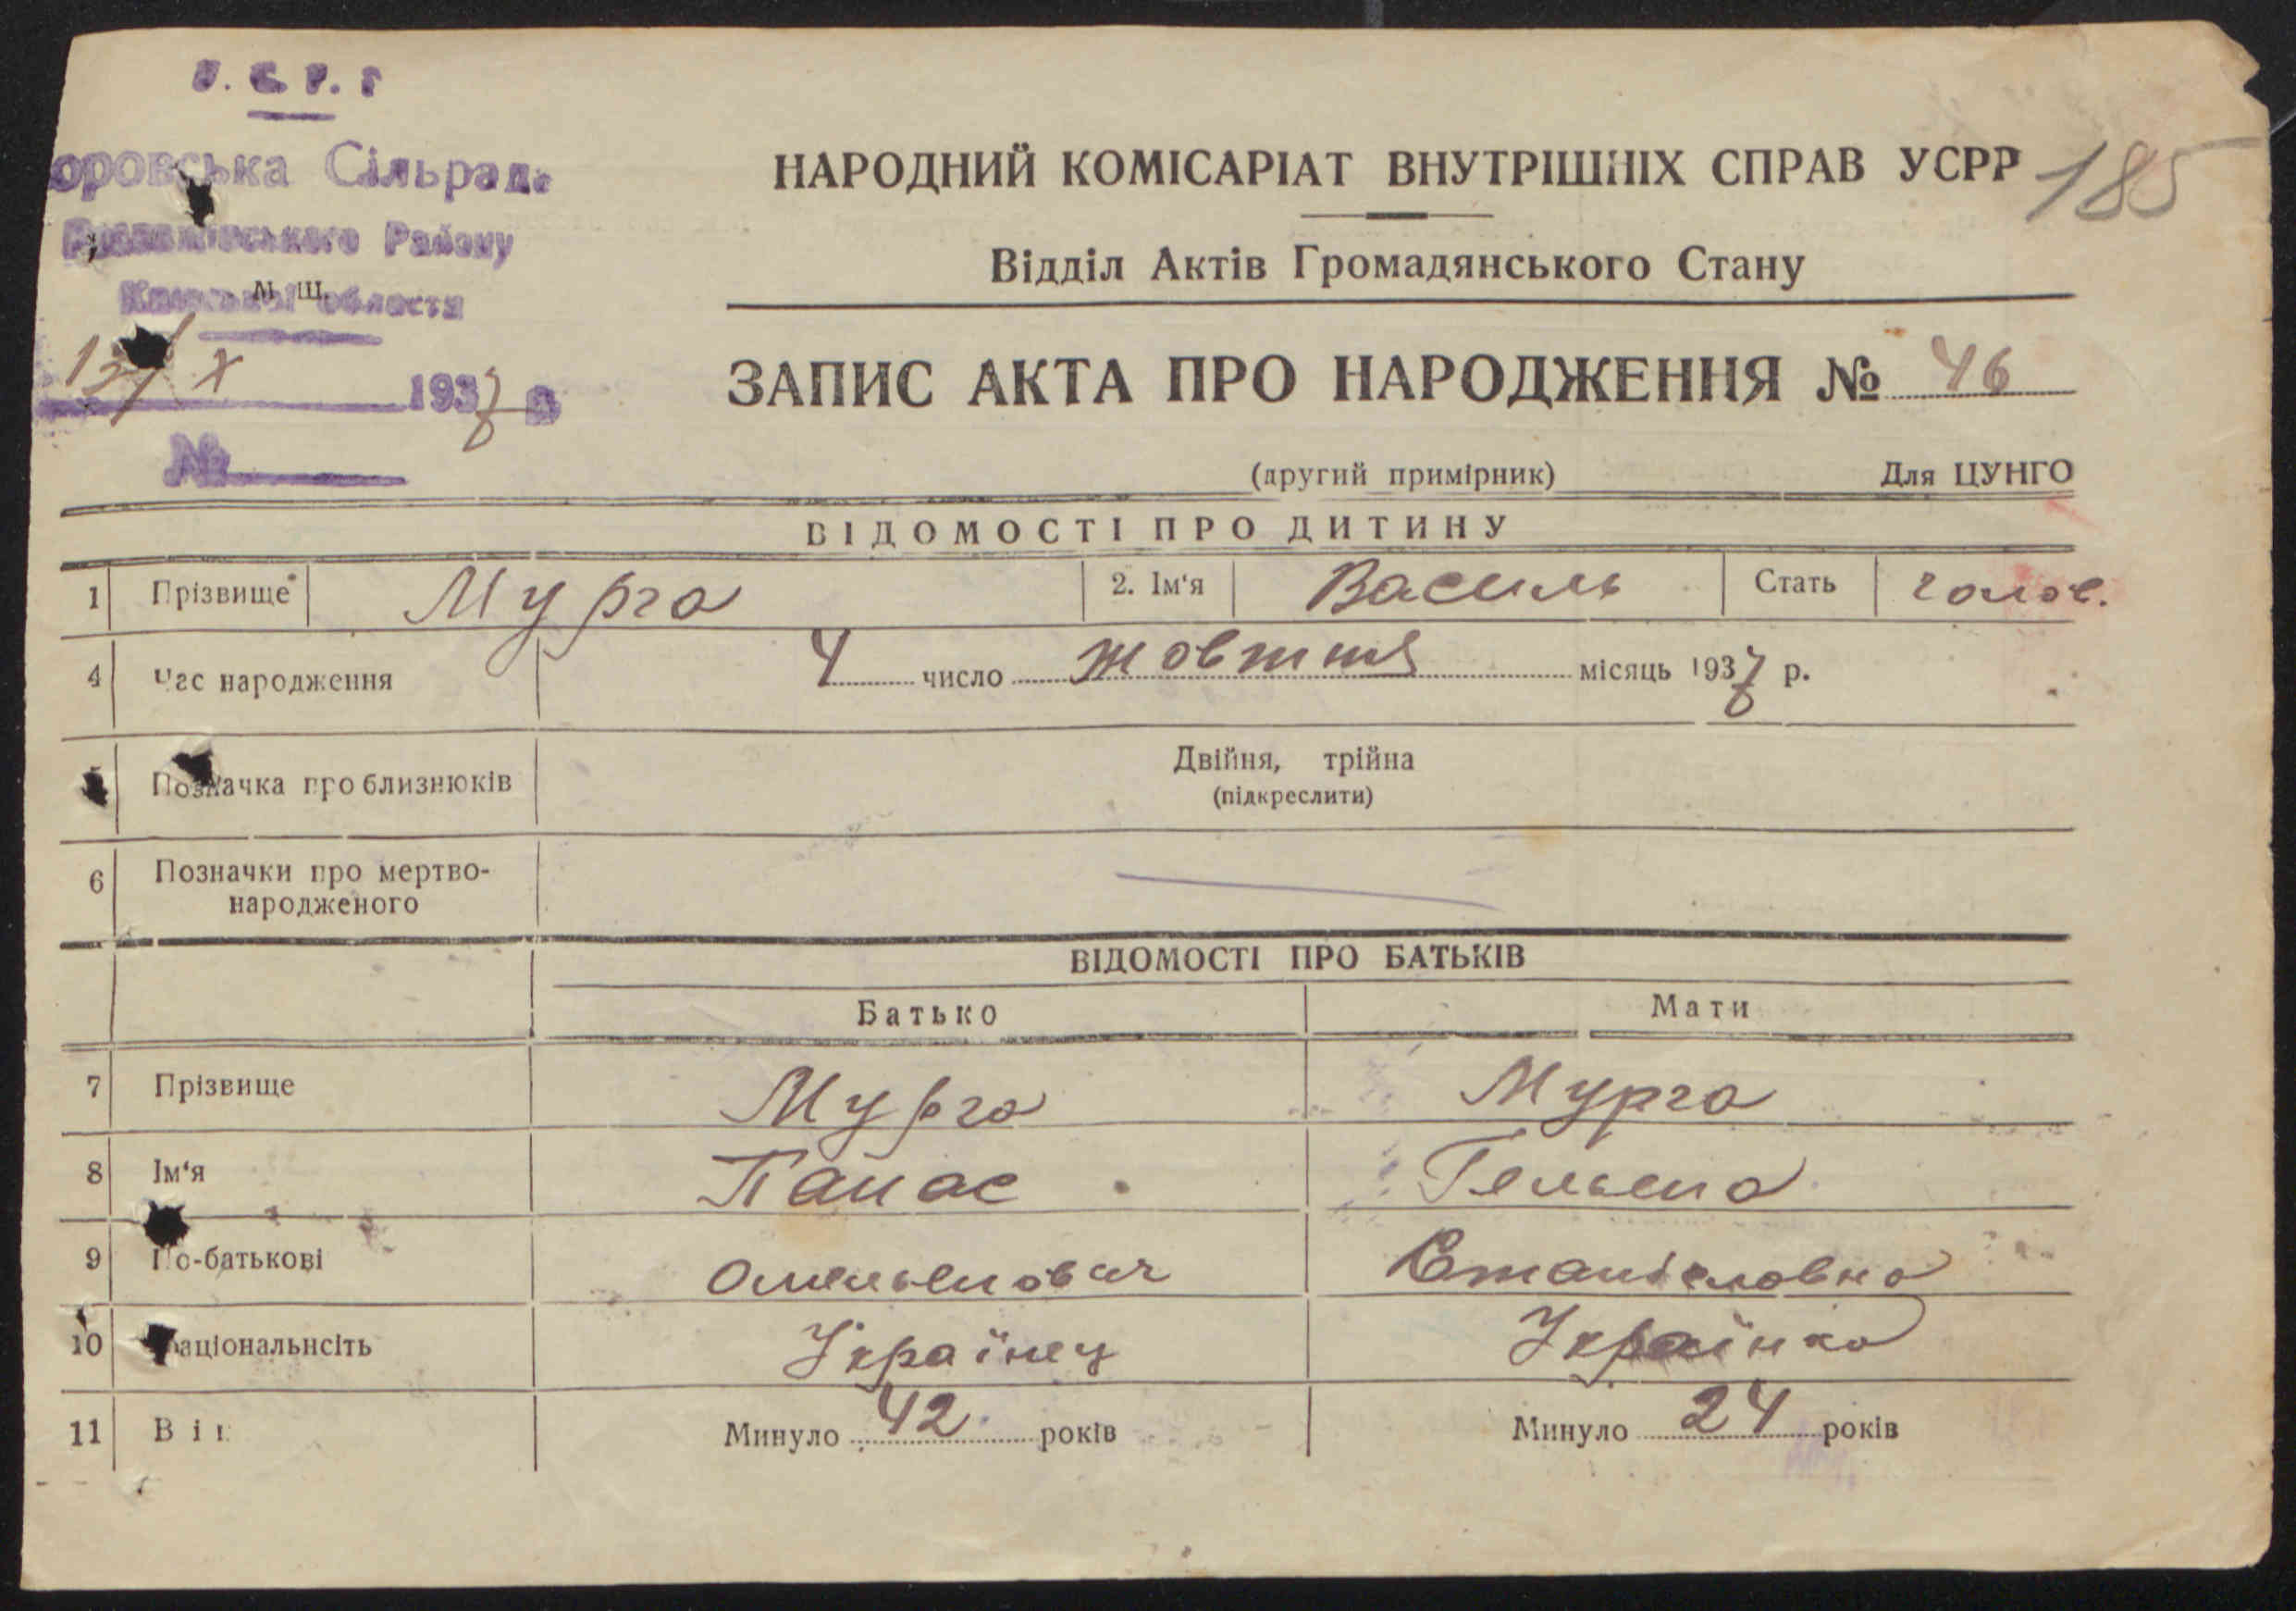 У. С. Р. Р
оровська Сільрада
Району
Київської області
М. Ш.
13/X 1937 р
№
НАРОДНИЙ КОМІСАРІАТ ВНУТРІШНІХ СПРАВ УСРР 185
Відділ Актів Громадянського Стану
ЗАПИС АКТА ПРО НАРОДЖЕННЯ № 46
(другий примірник) Для ЦУНГО
ВІДОМОСТІ ПРО ДИТИНУ
1 Прізвище Мурга 2. Ім'я Василь Стать чолов.
4 Час народження 4 число жовтня місяць 1937 р.
5 Позначка про близнюків Двійня, трійна
(підкреслити)
6 Позначки про мертво-
народженого
ВІДОМОСТІ ПРО БАТЬКІВ
Батько Мати
7 Прізвище Мурга Мурга
8 Ім'я Панас Гельена
9 По-батькові Омельенович Станіславовна
10 Національнсіть Українец Українка
11 Вік Минуло 42 років Минуло 24 років